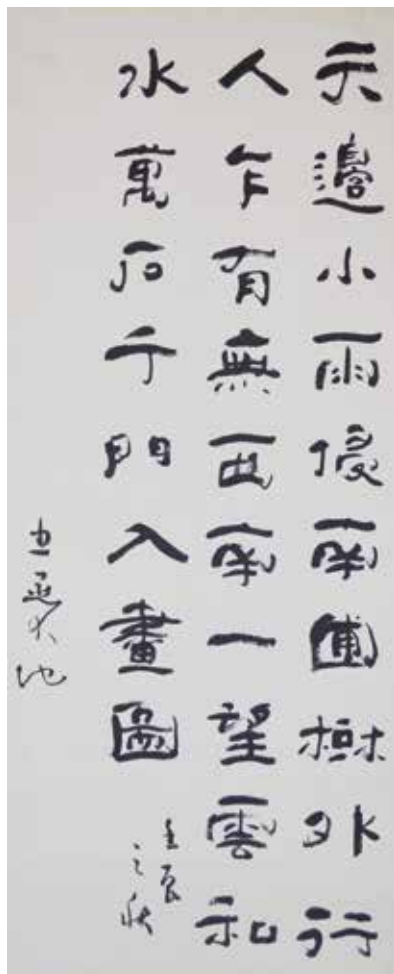 天邊小雨侵南圃樹外行
人乍有無西南一望雲和
水萬戶千門入畫圖
壬辰
之秋